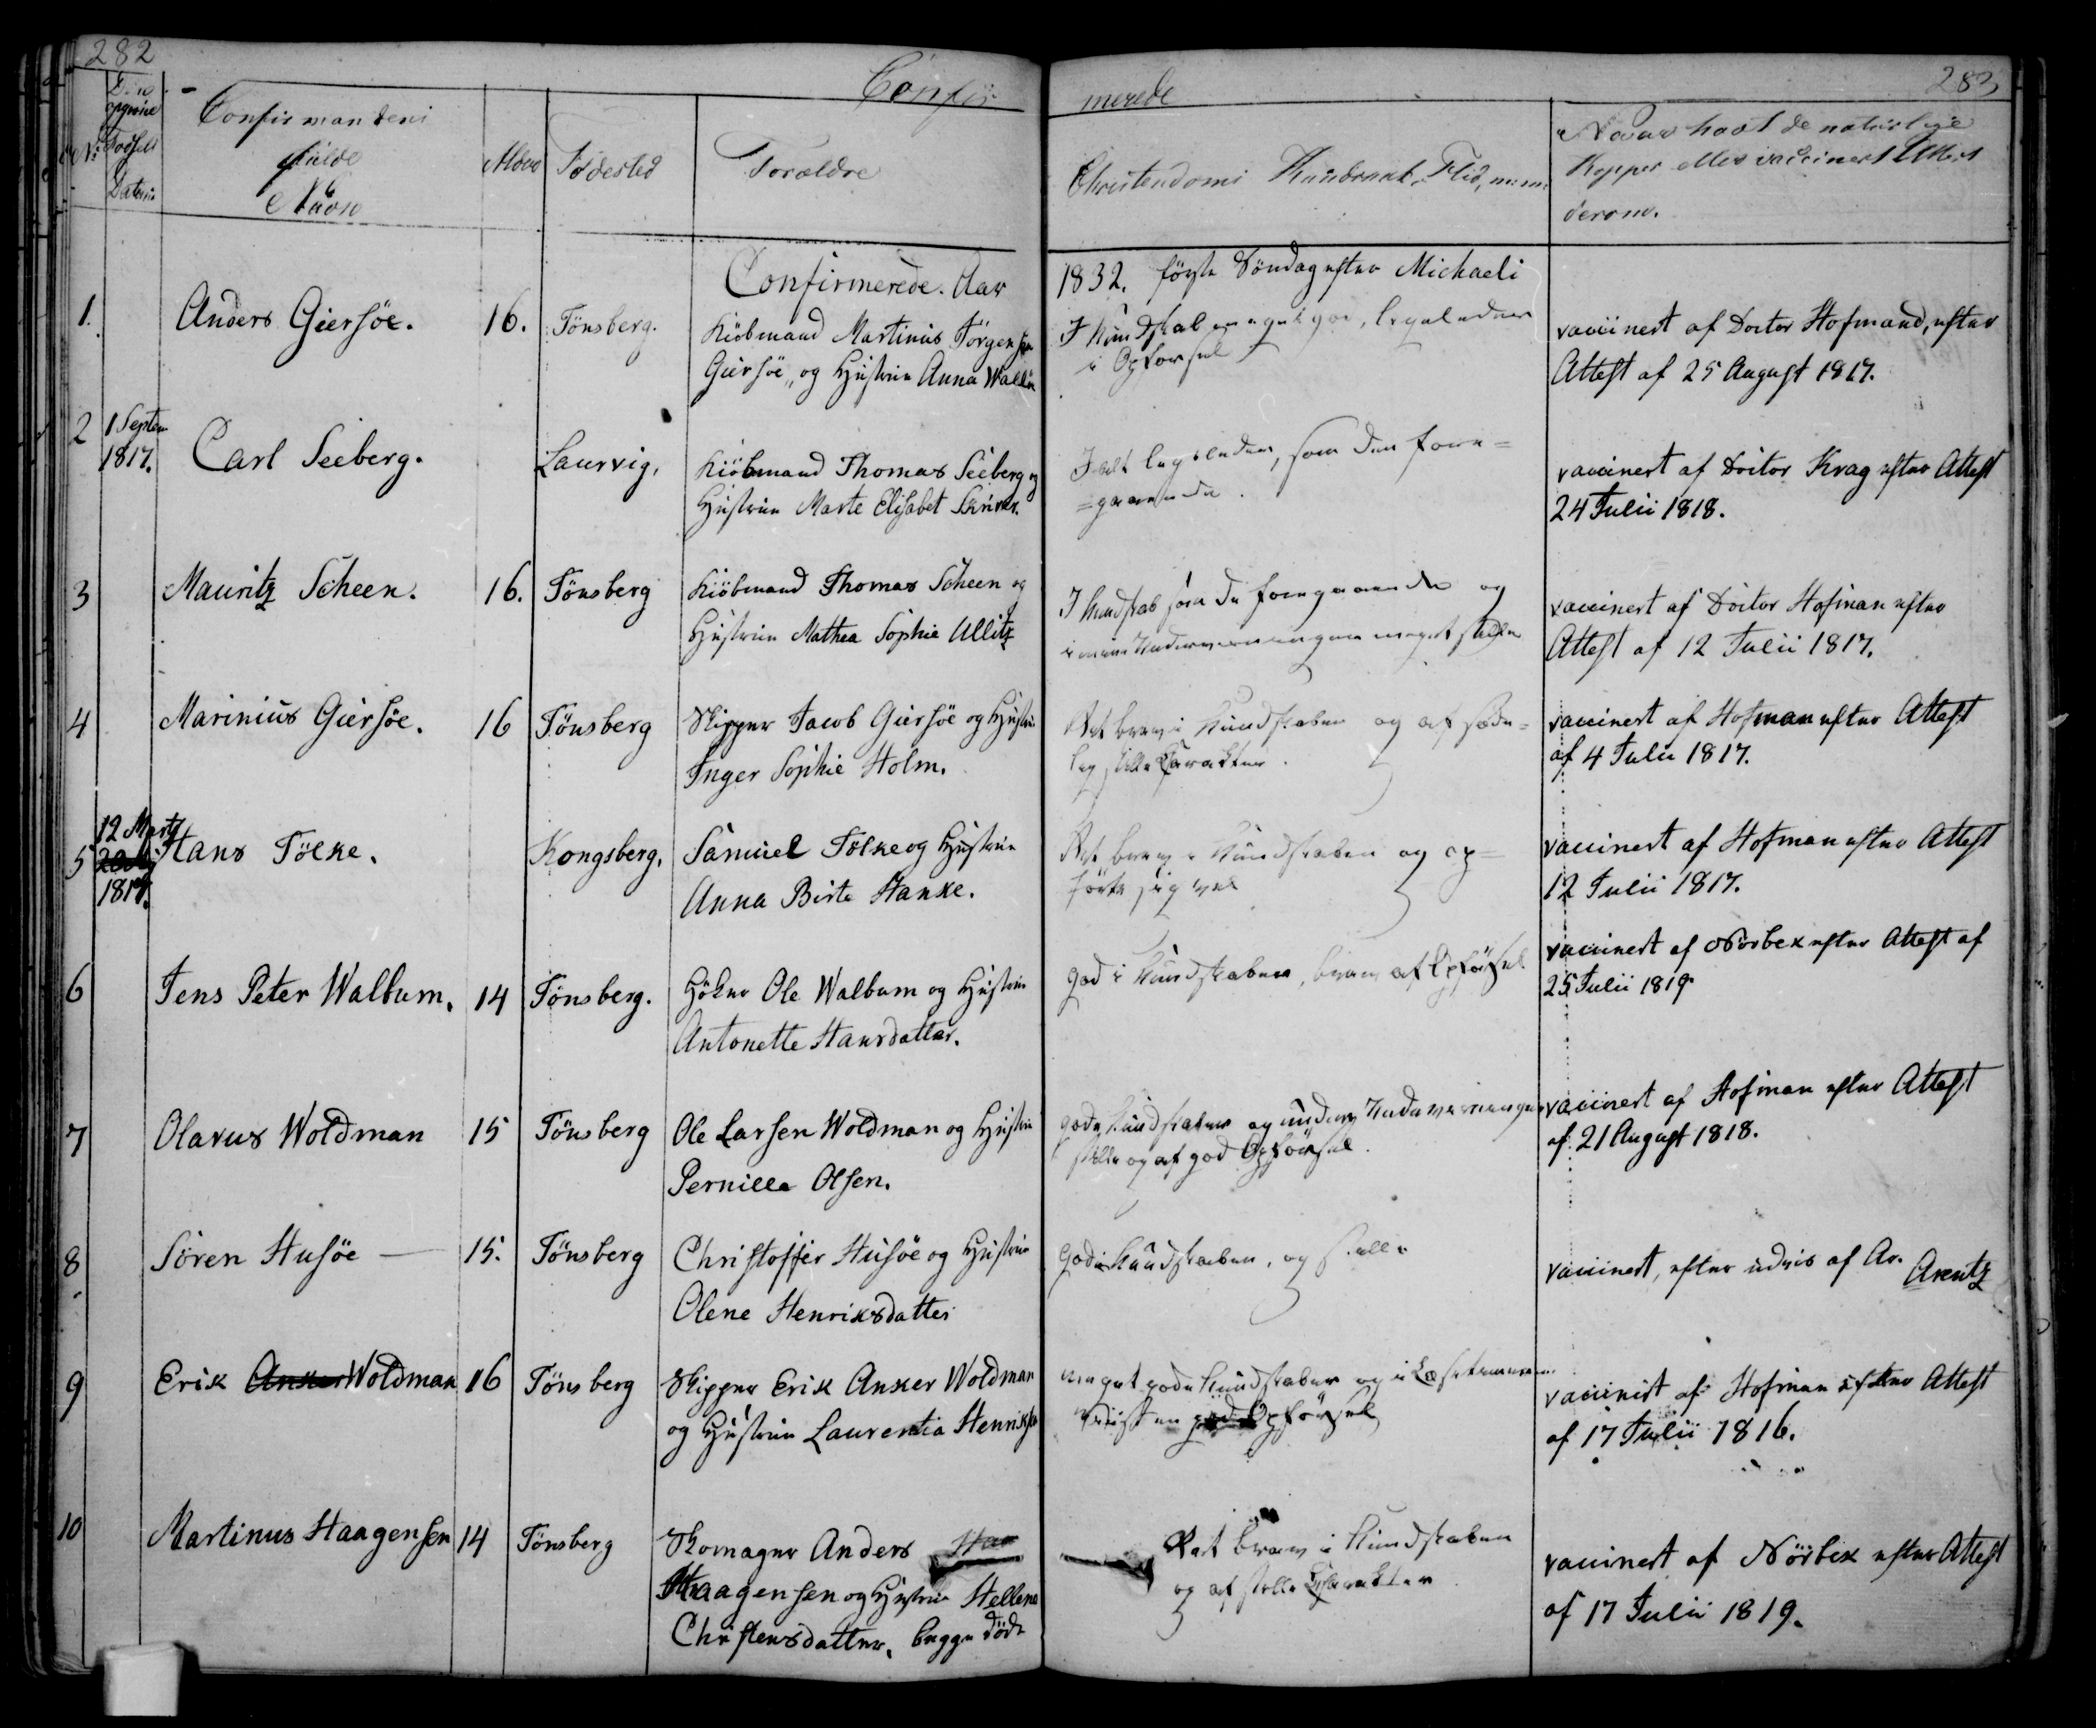 282
Confir
merede
283
No
Den
opgivne
Fødsels
Datum
Confirmandens
fulde
Navn
Alder
Fødested
Forældre
Christendoms Kundskab, Flid, m: m:
Naar havt de naturlige
Kopper eller vaccinert Attest
derom.
Confirmerede. Aar
1832. förste Söndag efter Michaeli
1.
Anders Giersöe.
16.
Tönsberg.
Kiöbmand Martinus Jörgensen
Giersöe, og Hustrue Anna Wallöe
I Kundskab meget god, ligeledes
i Opförsel
vaccinert af Doctor Hofmand, efter
Attest af 25 August 1817.
2
1 Septem
1817.
Carl Seeberg.
Laurvig,
Kiöbmand Thomas Seeberg og
Hustrue Marte Elisabet
I alt ligeledes, som den fore=
=gaaende.
vaccinert af Doctor Krag efter Attest
24 Julii 1818.
3
Mauritz Scheen.
16.
Tönsberg
Kiöbmand Thomas Scheen og
Hustrue Mathea Sophie Ullitz
I Kundskab som de foregaaende og
i min Underviisningen meget stille
vaccinert af Doctor Hofman efter
Attest af 12 Julii 1817.
4
Marinius Giersöe.
16
Tönsberg
Skipper Jacob Giersöe og Hustrue
Inger Sophie Holm.
Ret brav i Kundskaber og af sæde=
lig stille Charakter.
vaccinert af Hofman efter Attest
af 4 Julii 1817.
5
12 Marty
1817.
Hans Tölke.
Kongsberg,
Samuel Tölke og Hustrue
Anna Birte Hanke.
Ret brav i Kundskaber og op=
förte sig vel
vaccinert af Hofman efter Attest
12 Julii 1817.
6
Jens Peter Walbum.
14
Tönsberg.
Höker Ole Walbum og Hustrue
Antonette Hansdatter.
god i Kundskaber, brav af Opförsel
vaccinert af Nörbek efter Attest af
25 Julii 1819.
7
Olavus Woldman
15
Tönsberg
Ole Larsen Woldman og Hustrue
Pernille Olsen.
gode Kundskaber og under Underviisningen
stille og af god Opförsel.
vaccinert af Hofman efter Attest
af 21 August 1818.
8
Sören Husöe —
15.
Tönsberg
Christoffer Husöe og Hustrue
Olene Henriksdatter
Gode Kundskaber, og stille
vaccinert, efter udvis af Ar. Arentz
9
Erik Anker Woldman
16
Tönsberg
Skipper Erik Anker Woldman
og Hustrue Laurentia Henriksen
meget gode Kundskaber og i
god Opförsel
vaccinert af Hofman efter Attest
af 17 Julii 1816.
10
Martinus Haagensen
14
Tönsberg
Skomager Anders Haa
Haagensen og Hustrue Hellene
Christensdatter, begge döde
Ret brav i Kundskaber
og af stille Charakter
vaccinert af Nörbek efter Attest
af 17 Julii 1819.